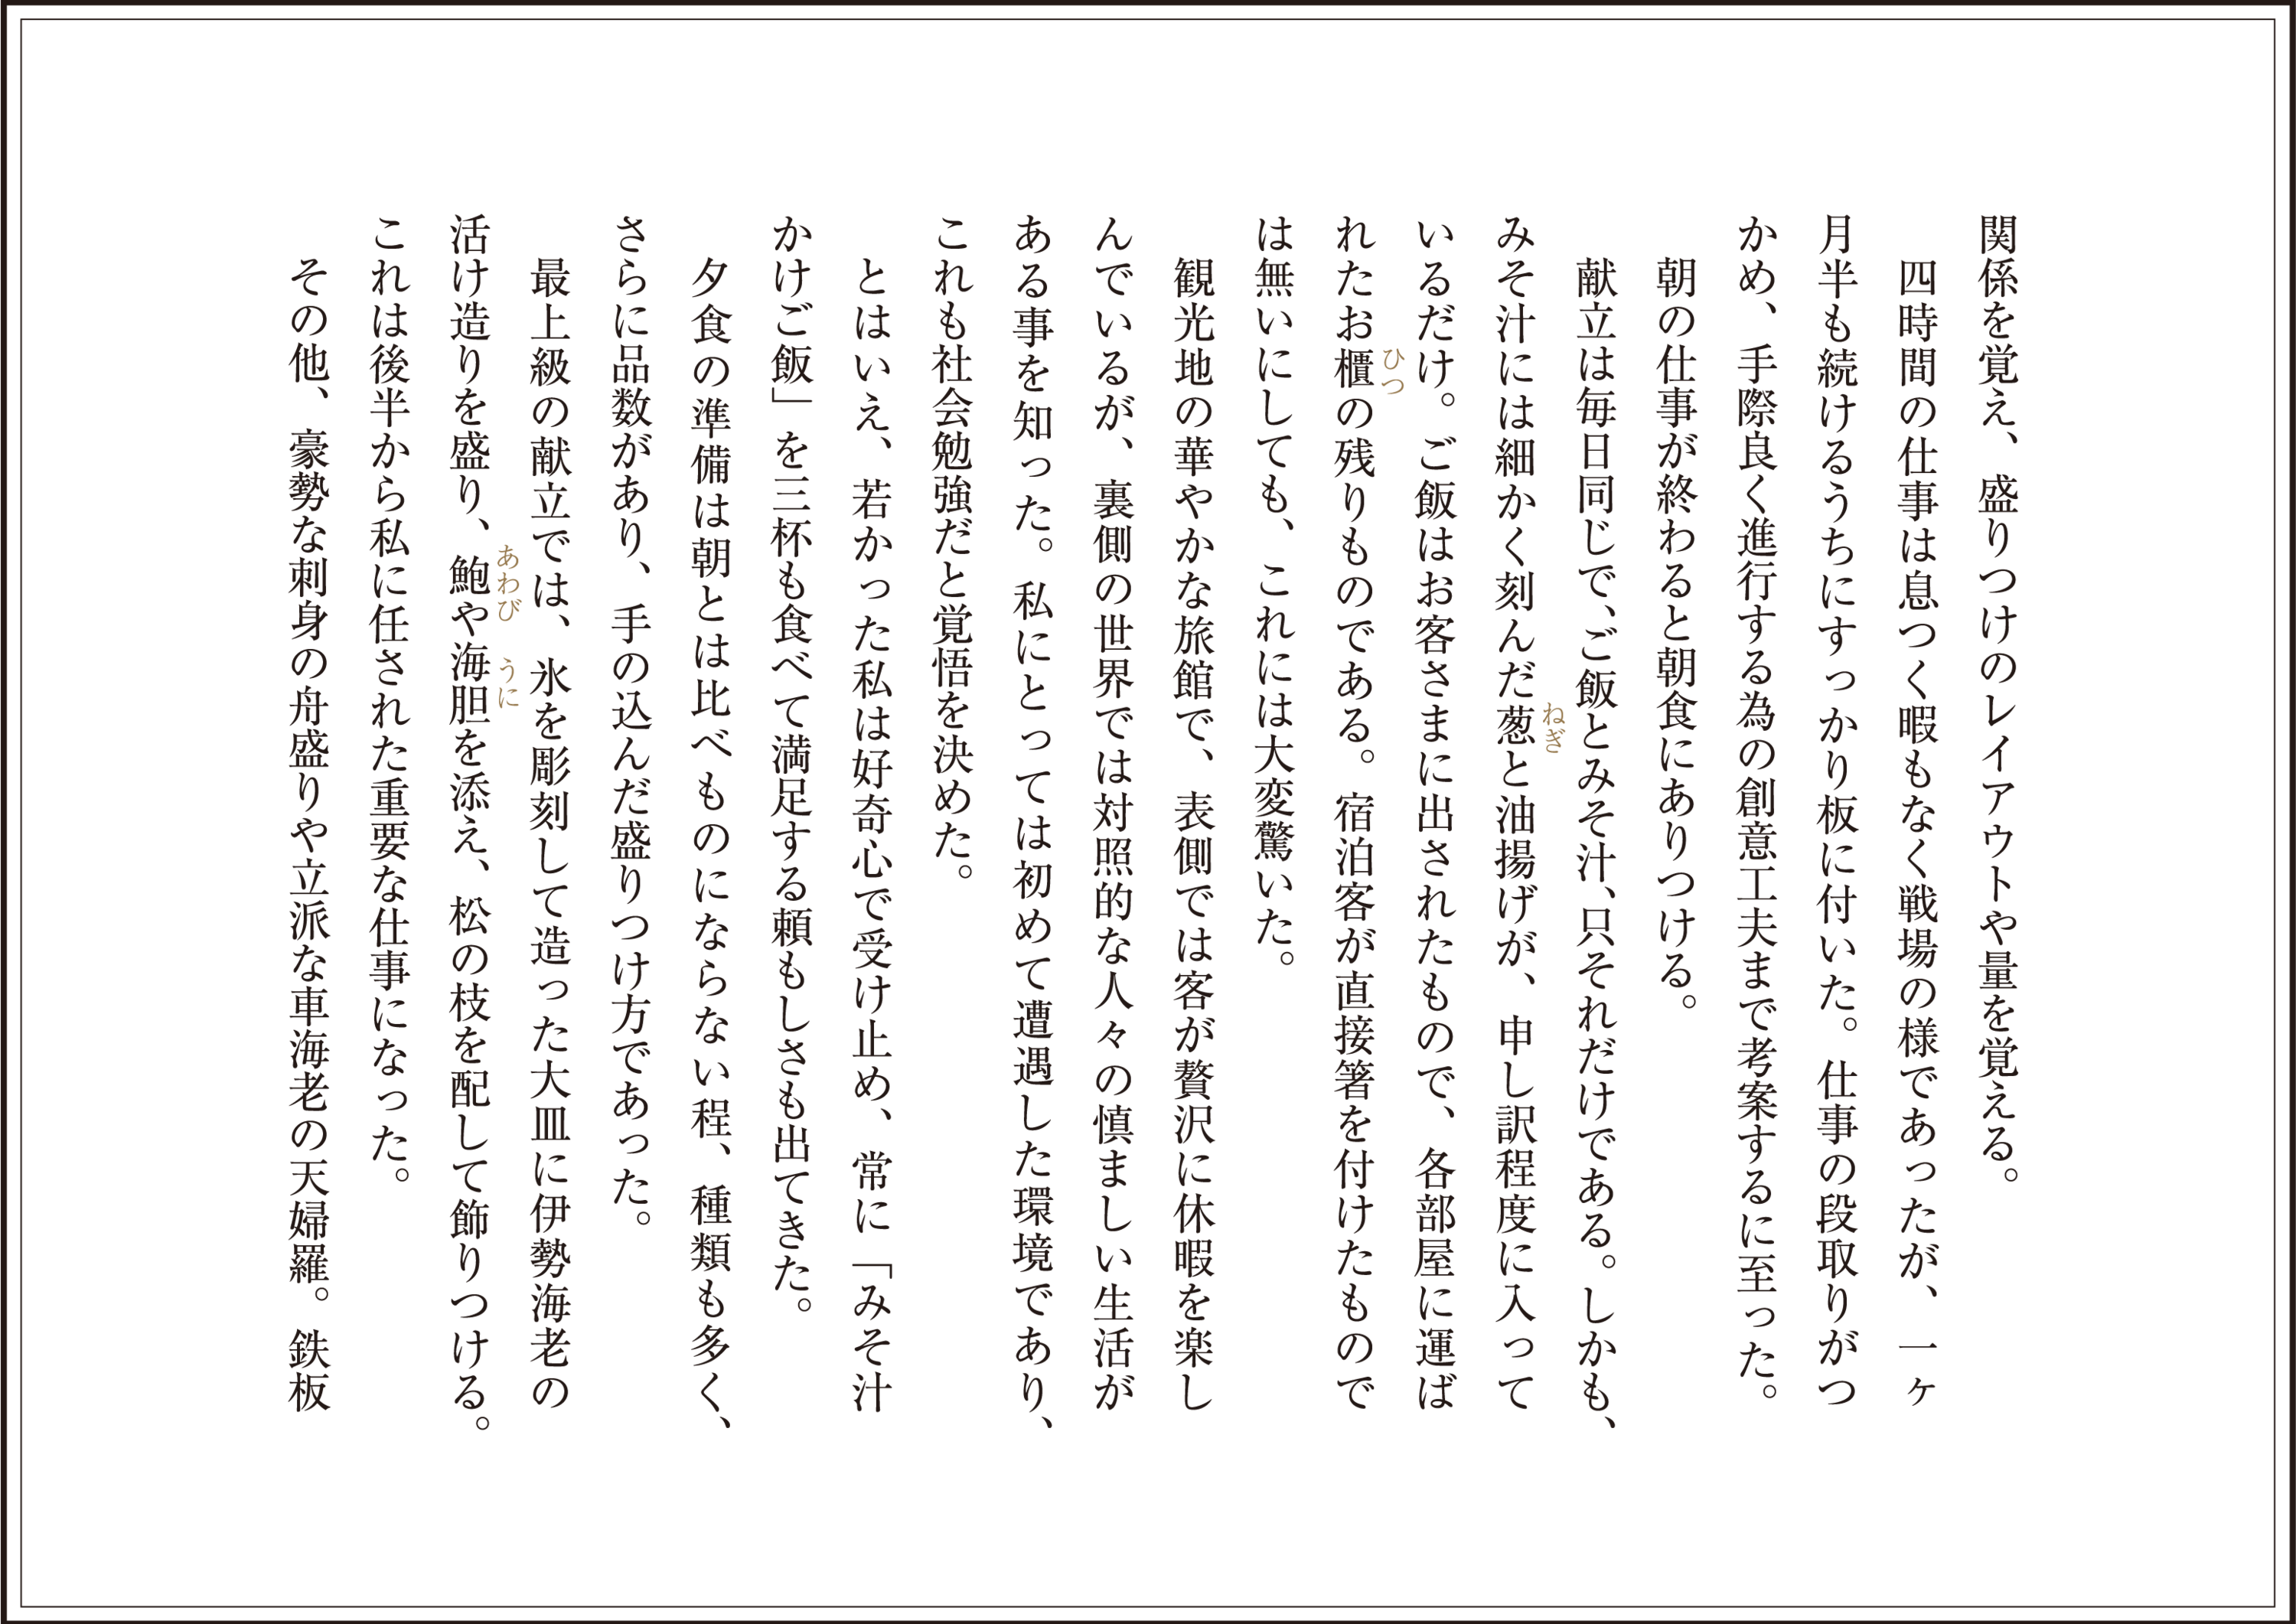 関係を覚え、盛りつけのレイアウトや量を覚える。
四時間の仕事は息つく暇もなく戦場の様であったが、一ヶ
月半も続けるうちにすっかり板に付いた。仕事の段取りがつ
かめ、手際良く進行する為の創意工夫まで考案するに至った。
朝の仕事が終わると朝食にありつける。
献立は毎日同じで、ご飯とみそ汁、只それだけである。しかも、
みそ汁には細かく刻んだ葱と油揚げが、申し訳程度に入って
ねぎ
いるだけ。ご飯はお客さまに出されたもので、各部屋に運ば
れたお櫃の残りものである。宿泊客が直接箸を付けたもので
ひつ
は無いにしても、これには大変驚いた。
観光地の華やかな旅館で、表側では客が贅沢に休暇を楽し
んでいるが、裏側の世界では対照的な人々の慎ましい生活が
ある事を知った。私にとっては初めて遭遇した環境であり、
これも社会勉強だと覚悟を決めた。
とはいえ、若かった私は好奇心で受け止め、常に「みそ汁
かけご飯」を三杯も食べて満足する頼もしさも出てきた。
夕食の準備は朝とは比べものにならない程、種類も多く、
さらに品数があり、手の込んだ盛りつけ方であった。
最上級の献立では、氷を彫刻して造った大皿に伊勢海老の
活け造りを盛り、鮑や海胆を添え、松の枝を配して飾りつける。
あわび うに
これは後半から私に任された重要な仕事になった。
その他、豪勢な刺身の舟盛りや立派な車海老の天婦羅。鉄板